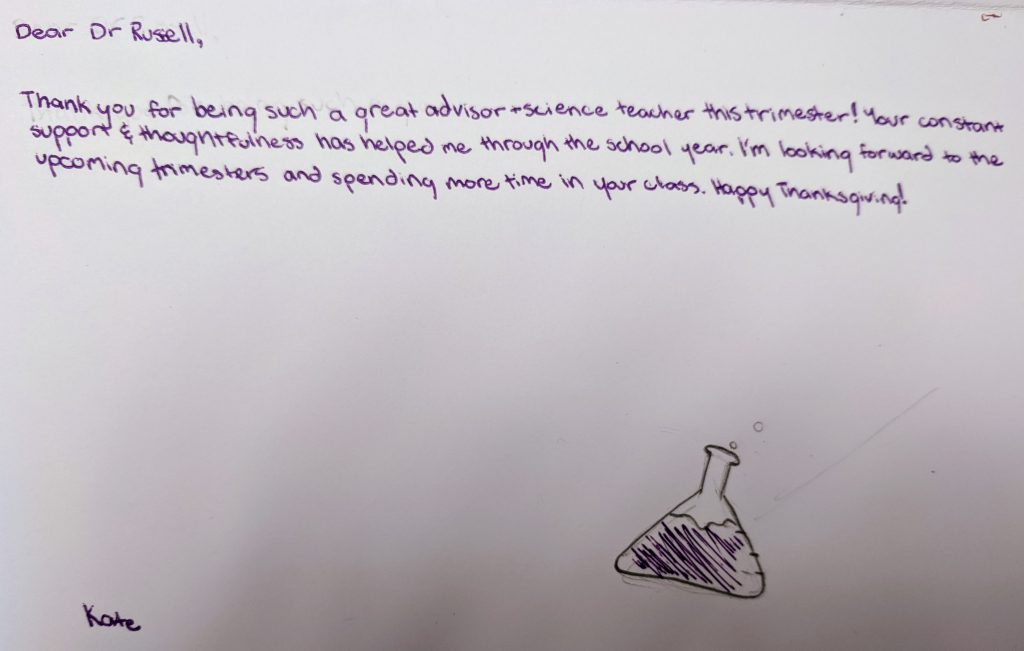 Dear Dr Rusell,
Thank you for being such a great advisor + science teacher this trimester! Your constant
support & thoughtfulness has helped me through the school year. I'm looking forward to the
upcoming trimesters and spending more time in your class. Happy Thanksgiving!
Kate